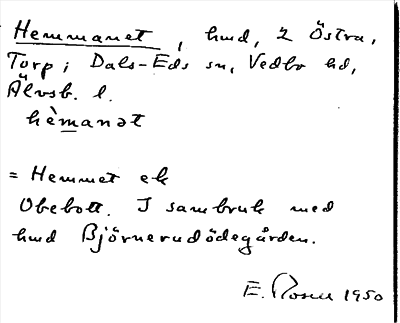 Hemmanet, hmd, 2 Östra,
Torp; Dals-Eds sn, Vedbo hd,
Älvsb. l.
hèmanət
= Hemmet ek
Obebott. I sambruk med
hmd Björnerudödegården.
E. Rosell 1950